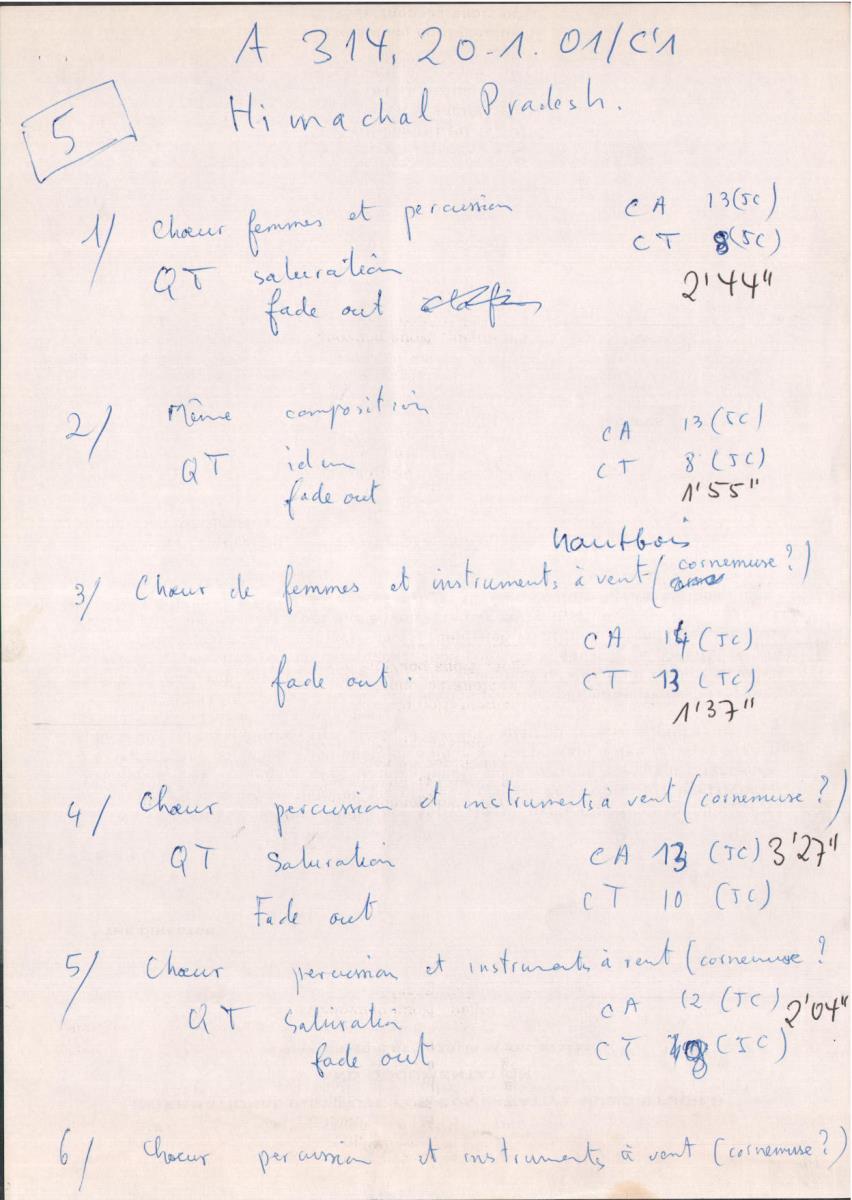 A 314, 20-1. 01/C'1
5
Himachal Pradesh.
1/ Chœur femmes et percussion CA 13(JC)
QT saturation CT 8(JC)
fade out 2'44"
2/ Même composition CA 13(JC)
QT idem CT 8 (JC)
fade out 1'55"
hautbois
3/ Chœur de femmes et instruments à vent (cornemuse ?)
CA 14 (JC)
fade out. CT 13 (JC)
1'37"
4/ Chœur percussion et instruments à vent (cornemuse ?)
QT Saturation CA 13 (JC) 3'27"
Fade out CT 10 (JC)
5/ Chœur percussion et instruments à vent (cornemuse ?
QT Saturation CA 12 (JC) 2'04"
fade out CT 8 (JC)
6/ Chœur percussion et instruments à vent (cornemuse ?)